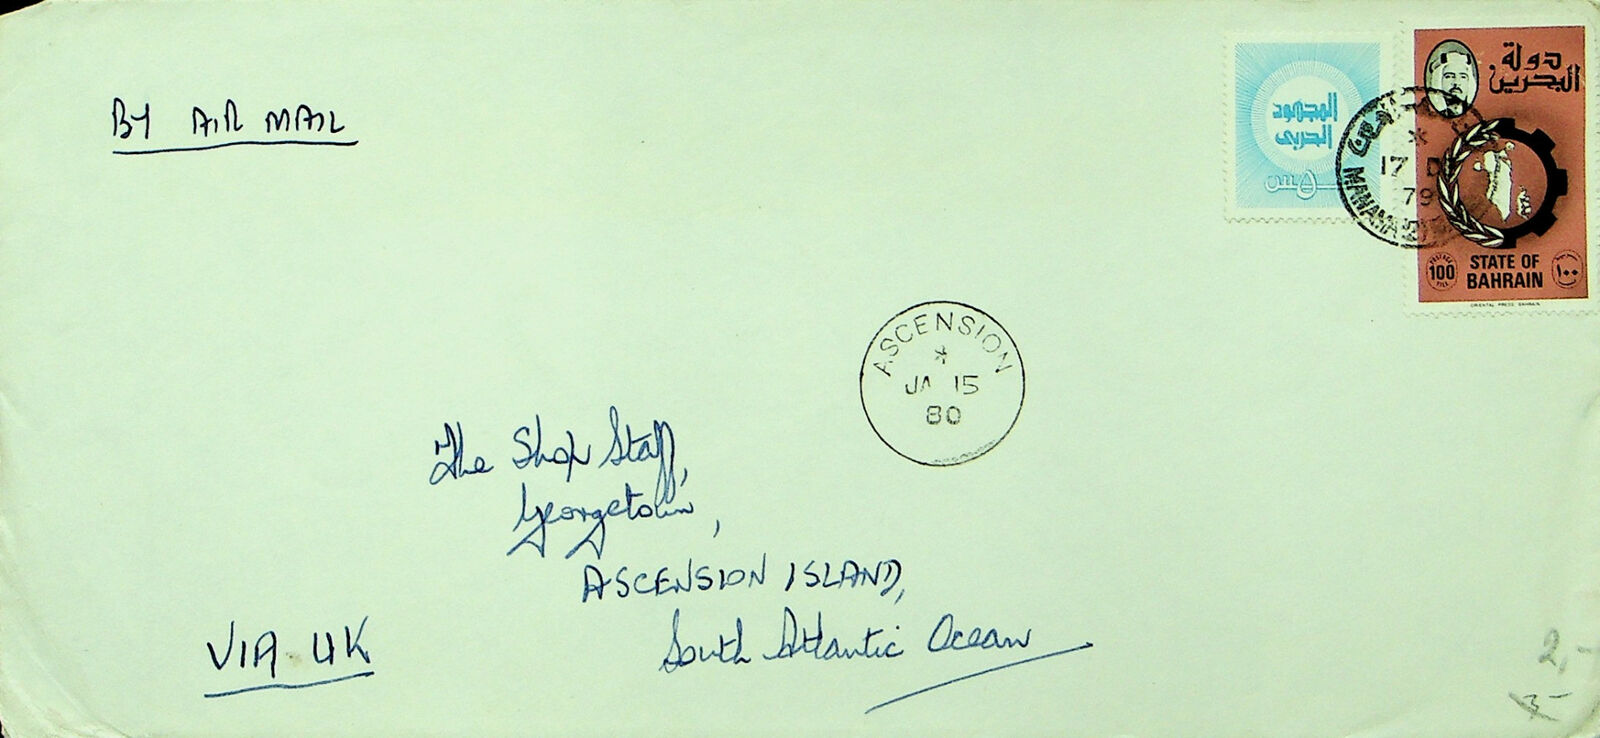 BY AIR MAIL
المجهود
الحربي
٥ فلس
دولة
البحرين
100
STATE OF
BAHRAIN
١٠٠
ORIENTAL PRESS BAHRAIN
17 D
79
MANAMA
ASCENSION
JA 15
80
The Shop Staff,
Georgetown,
ASCENSION ISLAND,
South Atlantic Ocean
VIA UK
2,-
3-